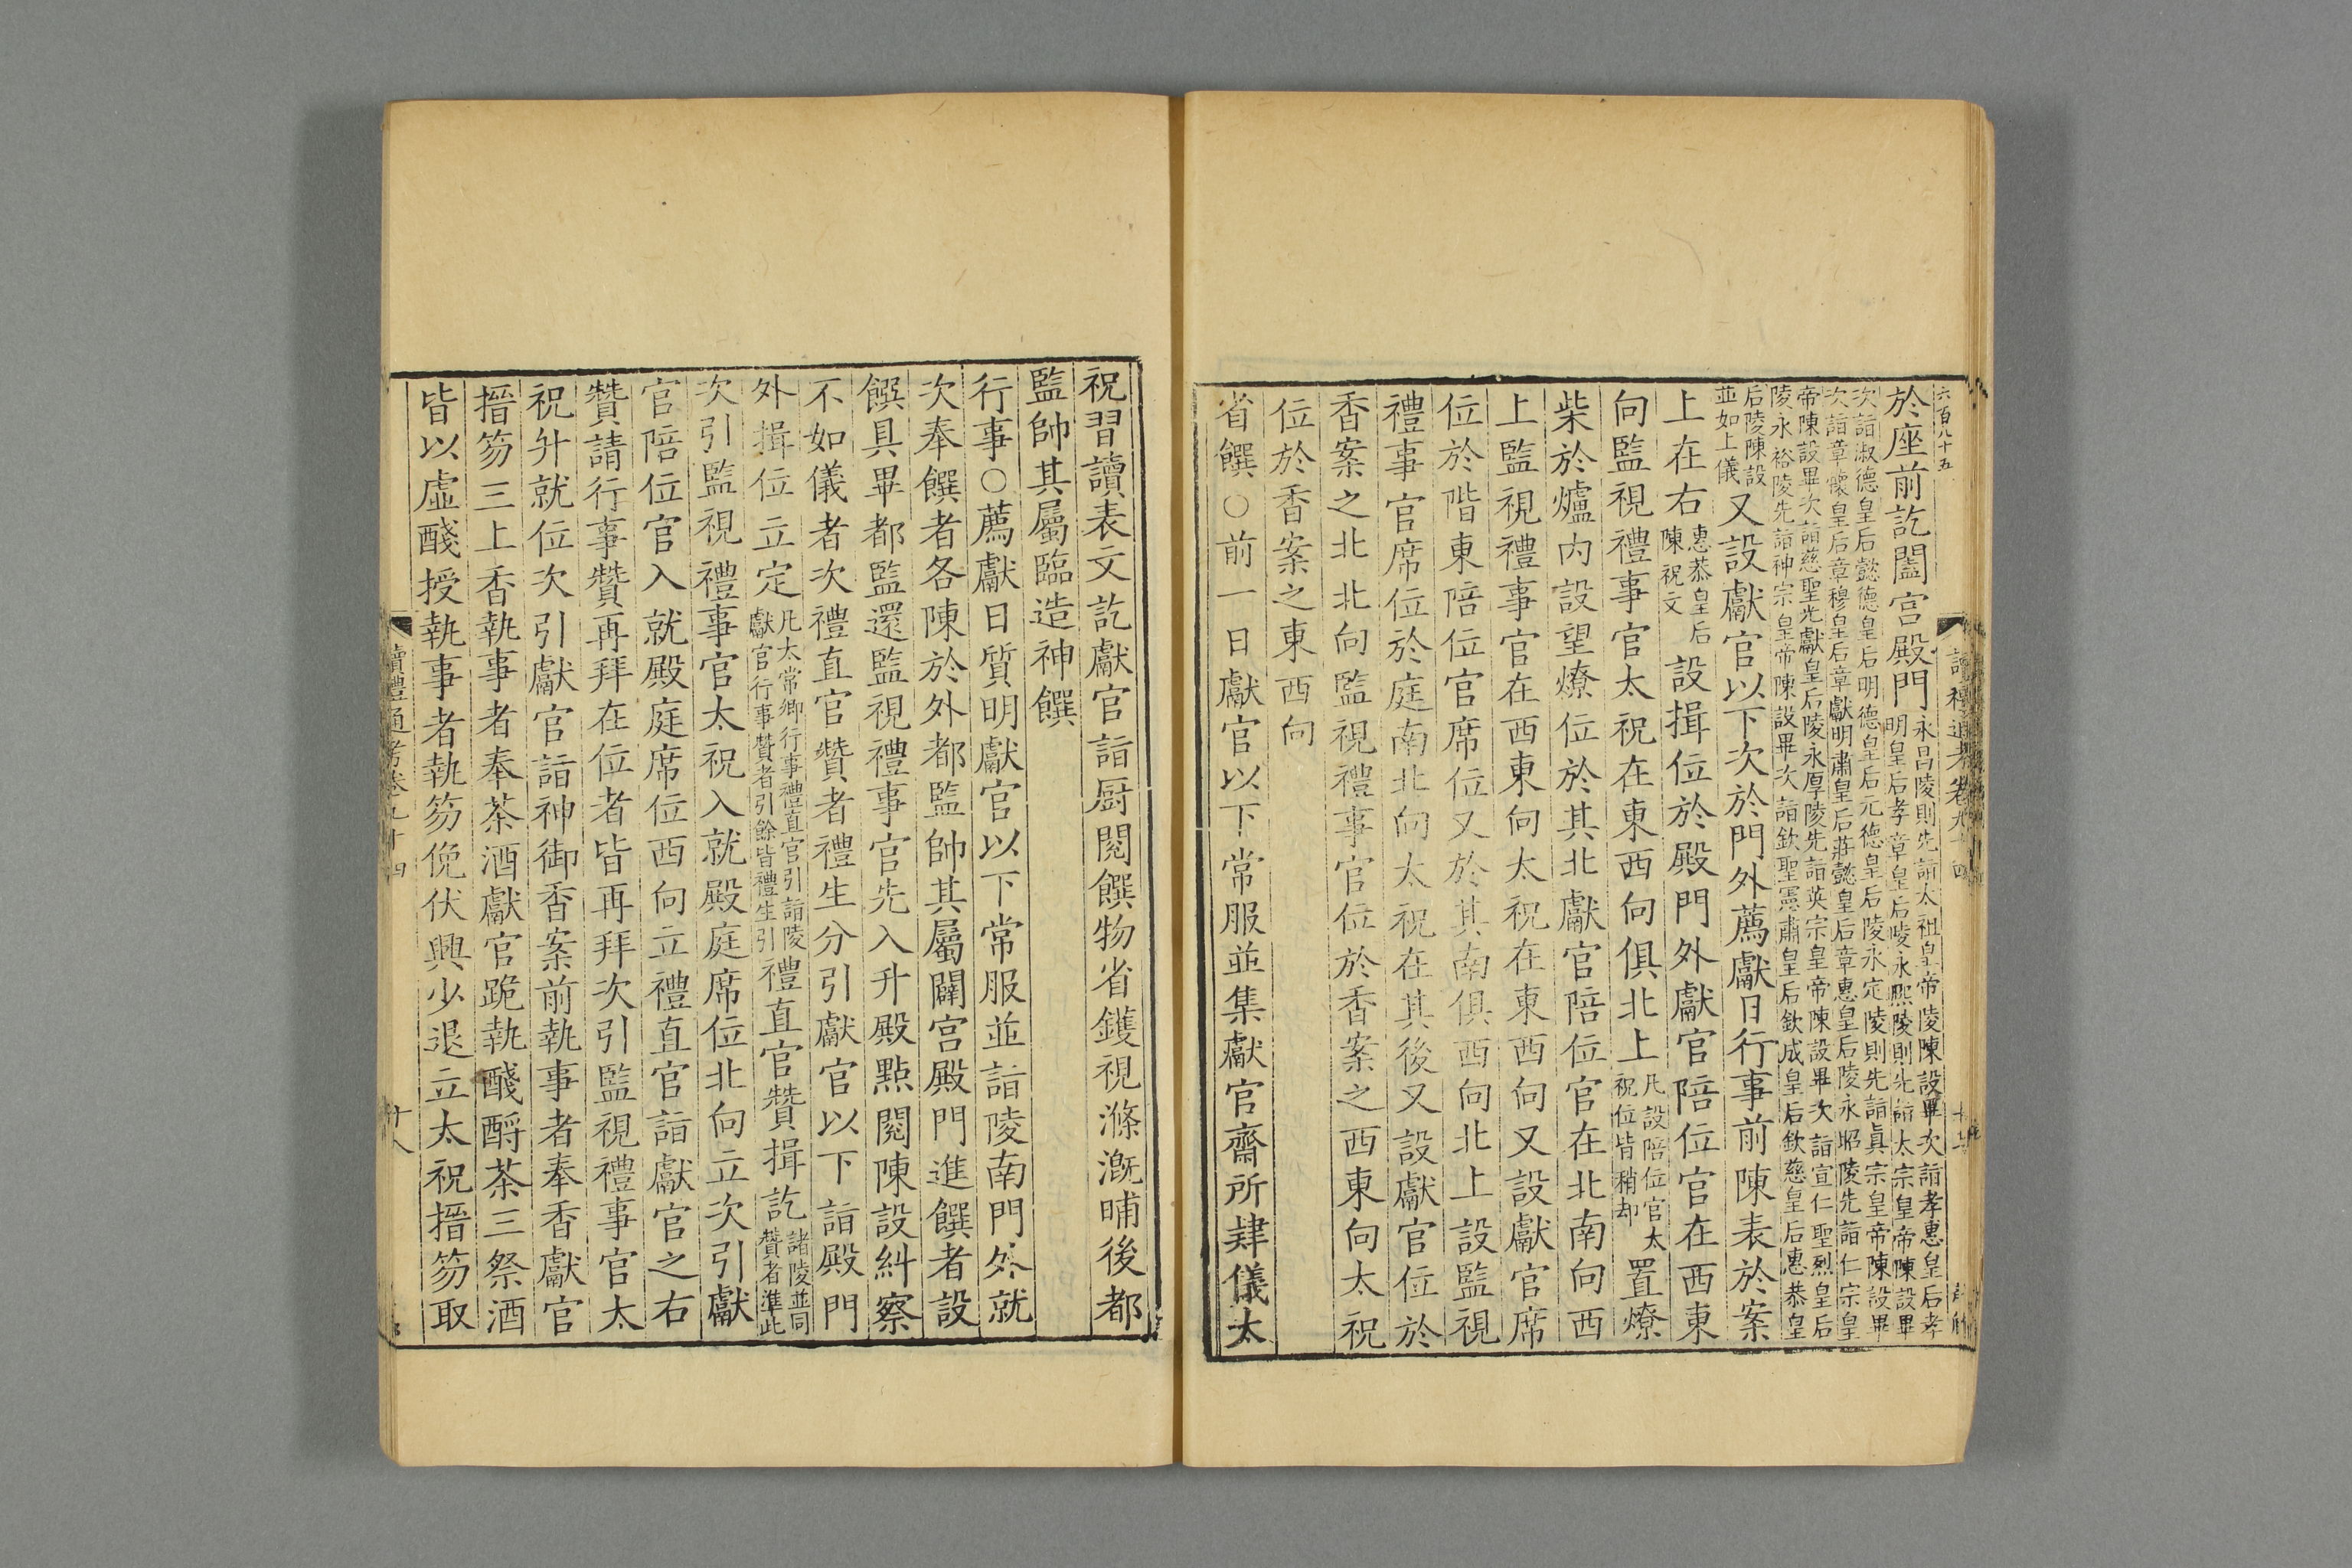 六百八十五
於座前訖闔宮殿門永昌陵則先詣太祖皇帝陵陳設畢次詣孝惠皇后孝明皇后孝章皇后陵永熙陵則先詣太宗皇帝陳設畢
次詣淑德皇后懿德皇后明德皇后元德皇后陵永定陵則先詣眞宗皇帝陳設畢次詣章懷皇后章穆皇后章獻明肅皇后莊懿皇后章惠皇后陵永昭陵先詣仁宗皇
帝陳設畢次詣慈聖光獻皇后陵永厚陵先詣英宗皇帝陳設畢次詣宣仁聖烈皇后陵永裕陵先詣神宗皇帝陳設畢次詣欽聖憲肅皇后欽成皇后欽慈皇后惠恭皇
后陵陳設並如上儀又設獻官以下次於門外薦獻日行事前陳表於案
上在右惠恭皇后陳祝文設揖位於殿門外獻官陪位官在西東
向監視禮事官太祝在東西向俱北上凡設陪位官太祝位皆稍却置燎
柴於爐內設望燎位於其北獻官陪位官在北南向西
上監視禮事官在西東向太祝在東西向又設獻官席
位於階東陪位官席位又於其南俱西向北上設監視
禮事官席位於庭南北向太祝在其後又設獻官位於
香案之北北向監視禮事官位於香案之西東向太祝
位於香案之東西向
省饌○前一日獻官以下常服並集獻官齋所肄儀太
讀禮通考卷九十四
祝習讀表文訖獻官詣厨閱饌物省鑊視滌漑晡後都
監帥其屬臨造神饌
行事○薦獻日質明獻官以下常服並詣陵南門外就
次奉饌者各陳於外都監帥其屬闢宮殿門進饌者設
饌具畢都監還監視禮事官先入升殿點閱陳設糾察
不如儀者次禮直官贊者禮生分引獻官以下詣殿門
外揖位立定凡太常卿行事禮直官引詣陵獻官行事贊者引餘皆禮生引禮直官贊揖訖諸陵並同贊者準此
次引監視禮事官太祝入就殿庭席位北向立次引獻
官陪位官入就殿庭席位西向立禮直官詣獻官之右
贊請行事贊再拜在位者皆再拜次引監視禮事官太
祝升就位次引獻官詣神御香案前執事者奉香獻官
搢笏三上香執事者奉茶酒獻官跪執醆酹茶三祭酒
皆以虛醆授執事者執笏俛伏興少退立太祝搢笏取
讀禮通考卷九十四
十八